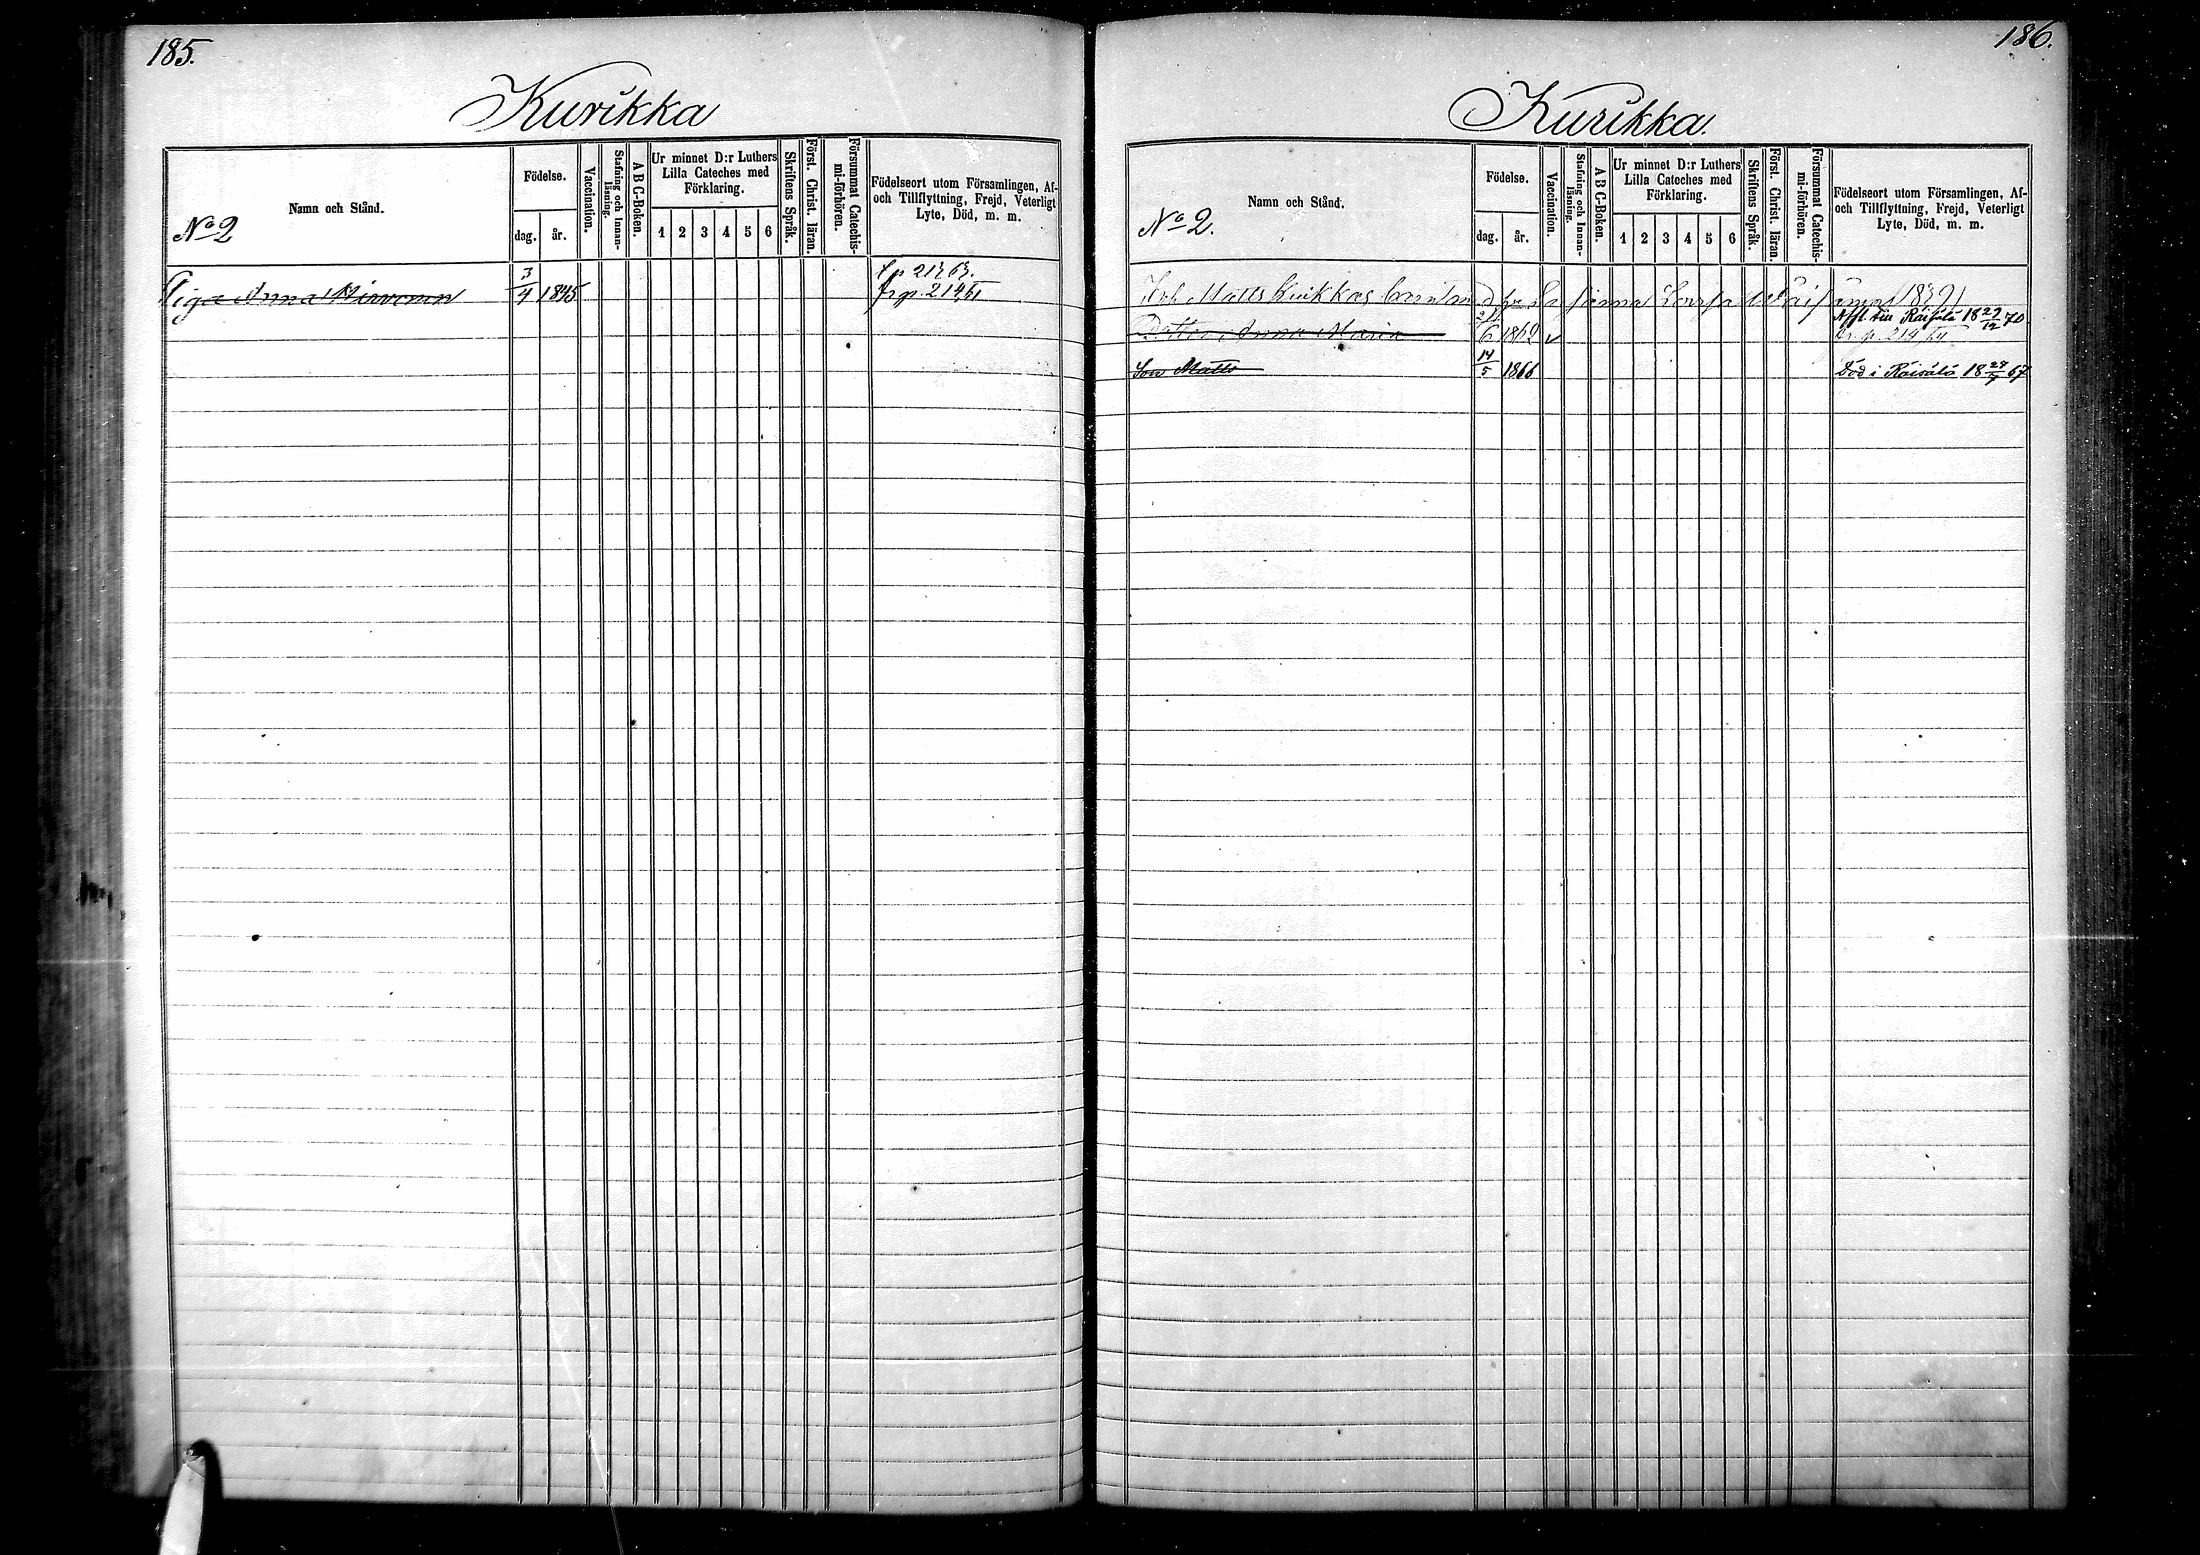 185.
Kurikka
Namn och Stånd.
No 2
Födelse.
dag. år.
Vaccination.
Stafning och Innan-läsning.
A B C-Boken.
Ur minnet D:r Luthers
Lilla Cateches med
Förklaring.
1 2 3 4 5 6
Skriftens Språk.
Först. Christ. läran.
Försummat Catechis-mi-förhören.
Födelseort utom Församlingen, Af-
och Tillflyttning, Frejd, Veterligt
Lyte, Död, m. m.
Piga Anna Hirvonen 3/4 1845
frp. 214
186.
Kurikka.
Namn och Stånd.
No 2.
Födelse.
dag. år.
Vaccination.
Stafning och Innan-läsning.
A B C-Boken.
Ur minnet D:r Luthers
Lilla Cateches med
Förklaring.
1 2 3 4 5 6
Skriftens Språk.
Först. Christ. läran.
Försummat Catechis-mi-förhören.
Födelseort utom Församlingen, Af-
och Tillflyttning, Frejd, Veterligt
Lyte, Död, m. m.
Matts barn
Affl. till Räisälä 18 29/12 70
Dotter Anna Maria 1862
Son Matts 14/5 1866 Död i Räisälä 18 67